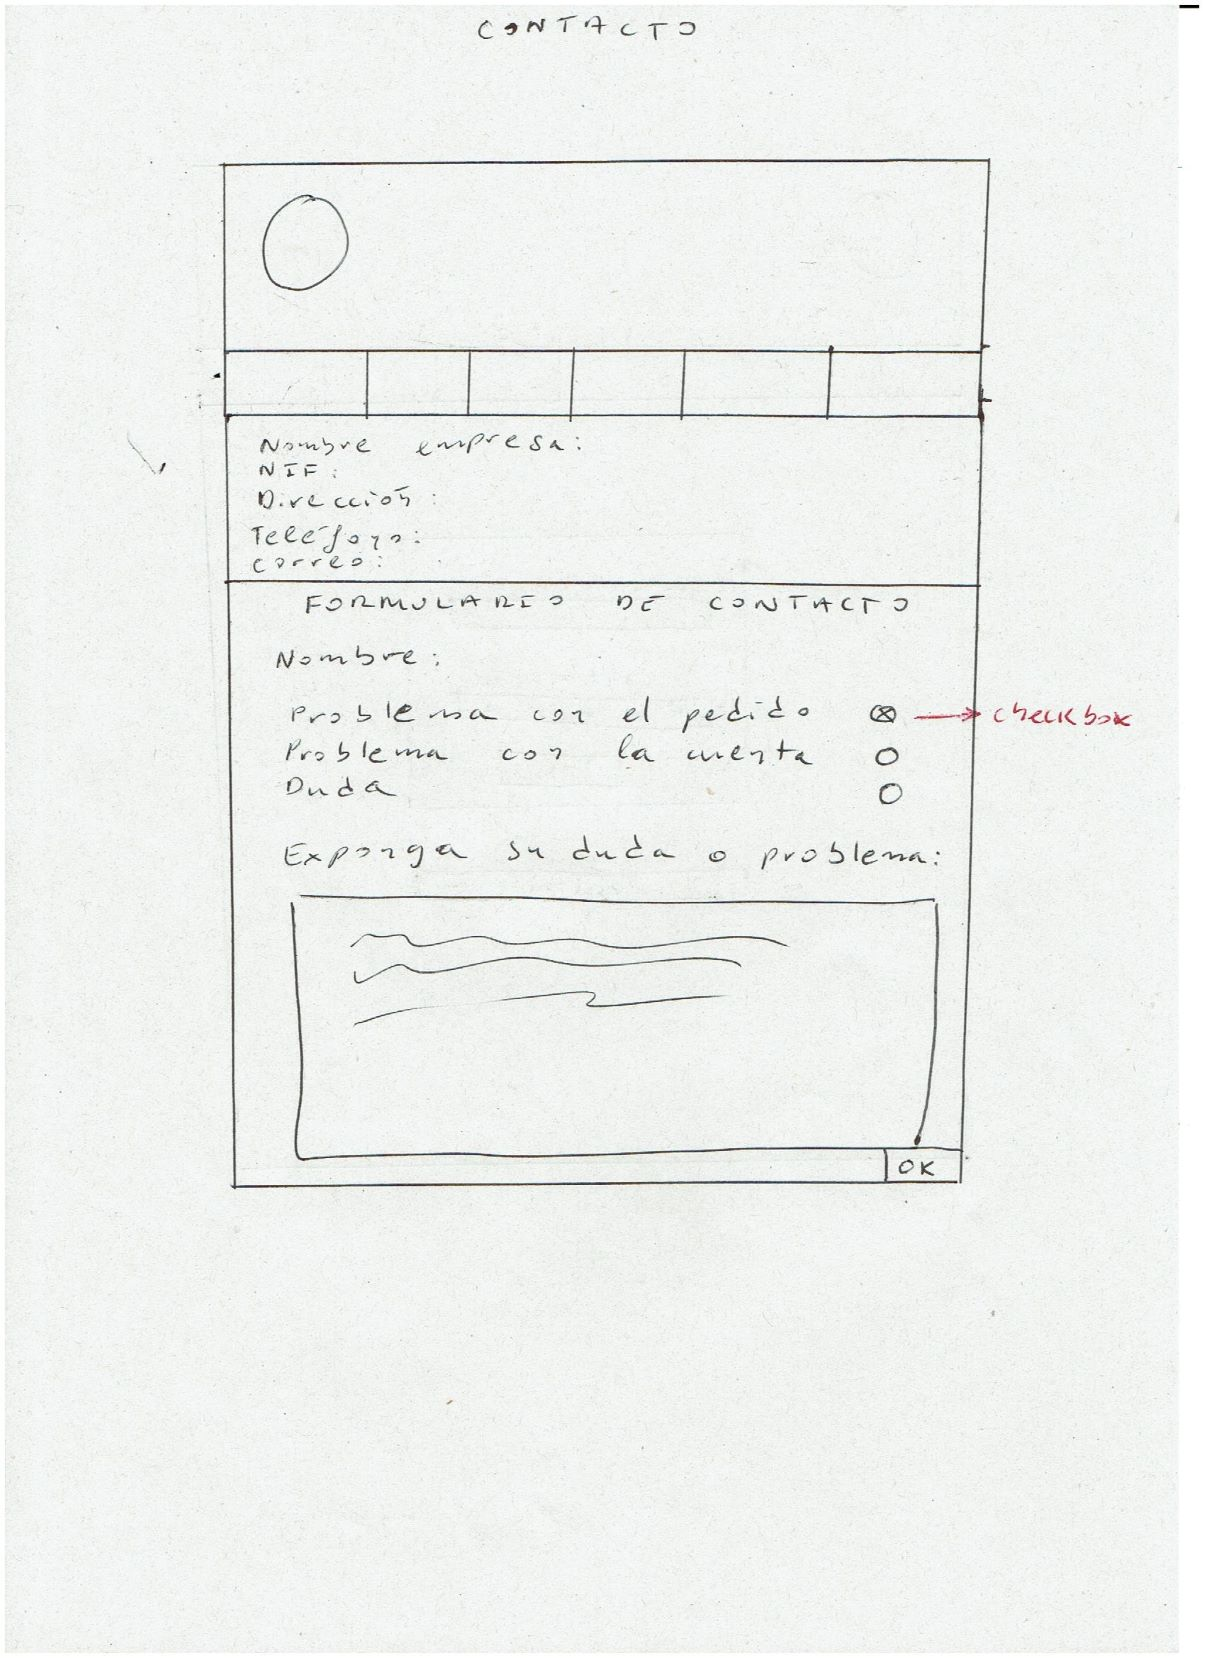 CONTACTO
Nombre empresa:
NIF:
Dirección:
Teléfono:
correo:
FORMULARIO DE CONTACTO
Nombre:
Problema con el pedido → checkbox
Problema con la cuenta
Duda
Exponga su duda o problema:
OK